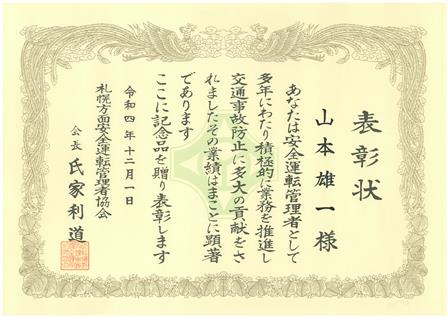 表彰状
山本雄一様
あなたは安全運転管理者として
多年にわたり積極的に業務を推進し
交通事故防止に多大の貢献をさ
れましたその業績はまことに顕著
であります
ここに記念品を贈り表彰します
令和四年十二月一日
札幌方面安全運転管理者協会
会長 氏家利道